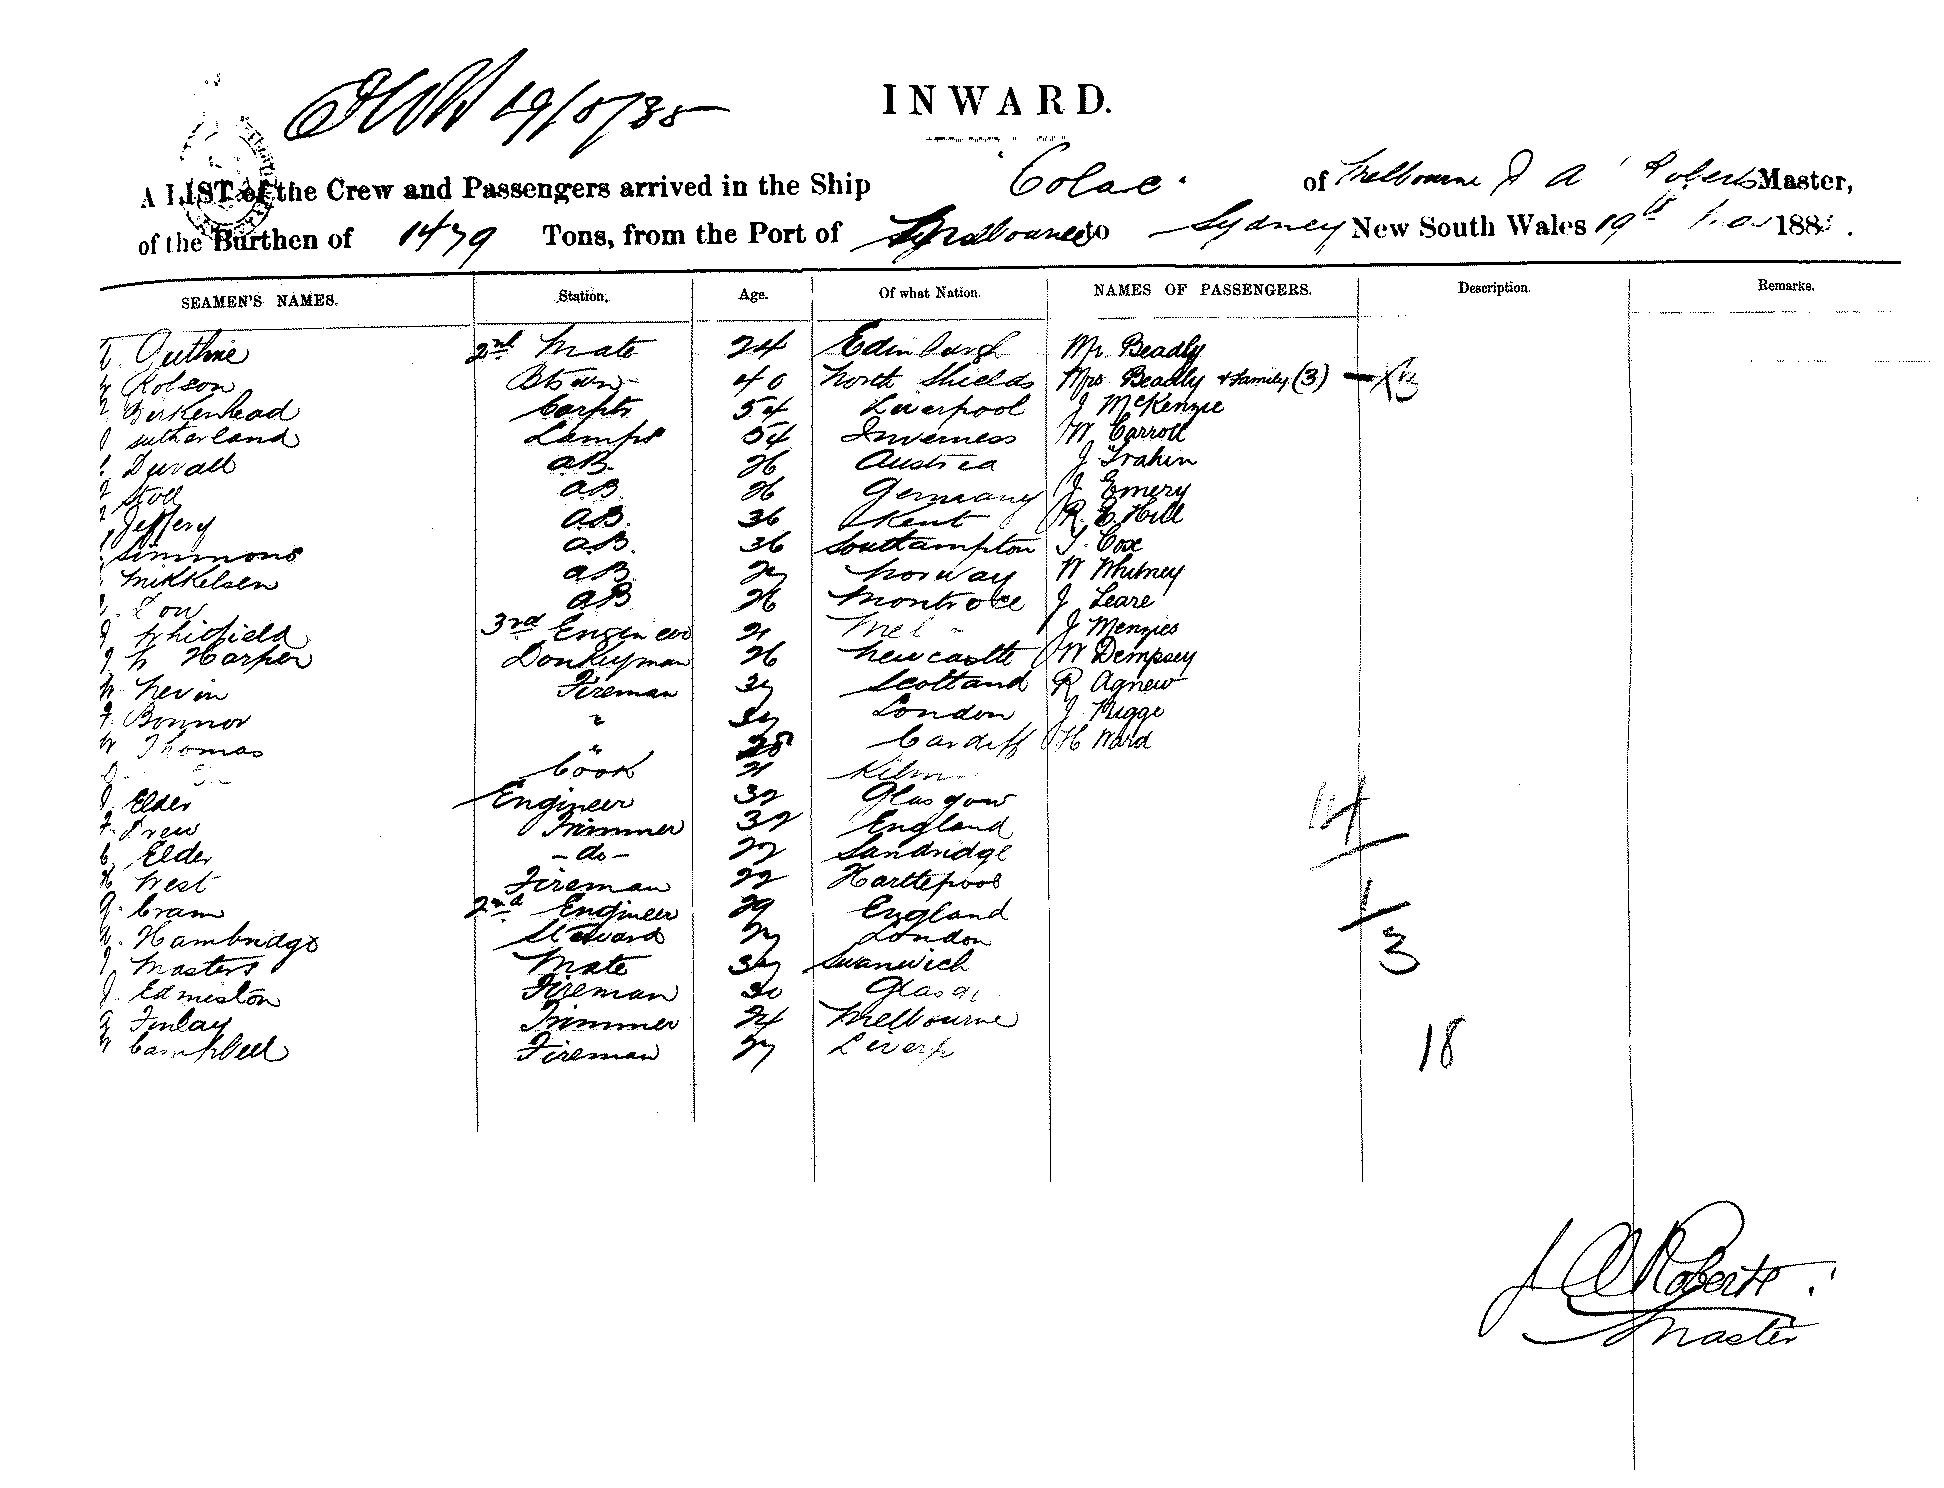 19/5/85
INWARD.
A LIST of the Crew and Passengers arrived in the Ship Colac of Melbourne J A Roberts Master,
of the Burthen of 1479 Tons, from the Port of Melbourne to Sydney New South Wales 19th 188
SEAMEN'S NAMES. Station. Age. Of what Nation. NAMES OF PASSENGERS. Description. Remarks.
Guthrie 2nd Mate 24 Edinburgh Mr. Beadly
Robson Btswn 40 North Shields Mrs Beadly & family (3)
Berkenhead Carptr 54 Liverpool J McKenzie
Sutherland Lamps 54 Inverness W Carroll
Duvall AB. 26 Austria J Trahin
Stoll AB. 26 Germany J Emery
Jeffery AB. 36 Kent R. E. Hill
Simmons AB. 36 Southampton T. Cox
Mikkelsen AB 27 Norway W Whitney
Low AB 26 Montrose J Leare
J Whitfield 3rd Engineer 21 Mel J Menzies
J W Harper Donkeyman 26 Newcastle W Dempsey
W. Nevin Fireman 37 Scotland R Agnew
F. Bonnor " 37 London J. Pigge
W Thomas " 28 Cardiff H Ward
J. Cook 21 Kilm
J Elder Engineer 32 Glasgow
F. Drew Trimmer 32 England
C Elder - do - 22 Sandridge 14
H West Fireman 22 Hartlepool
G. Cram 2nd Engineer 29 England 1
Hambridge Steward 27 London 3
J Masters Mate 37 Swanwich
J. Edmiston Fireman 30 Glasg
G Finlay Trimmer 24 Melbourne
Campbell Fireman 27 Liverp 18
J A Roberts
Master